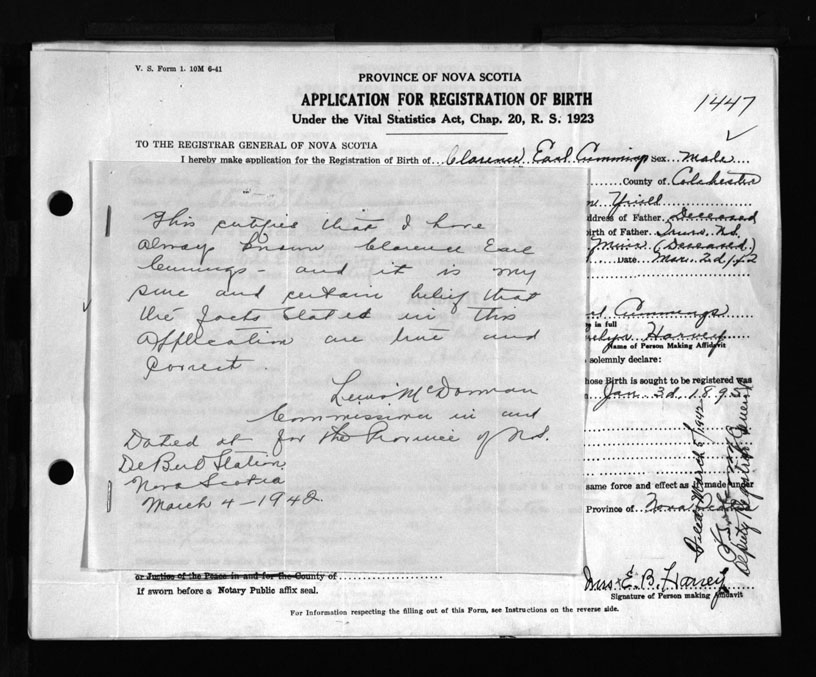 V. S. Form 1. 10M 6-41
PROVINCE OF NOVA SCOTIA
APPLICATION FOR REGISTRATION OF BIRTH
Under the Vital Statistics Act, Chap. 20, R. S. 1923
1447
TO THE REGISTRAR GENERAL OF NOVA SCOTIA
I hereby make application for the Registration of Birth of Clarence Earl Cummings Sex Male
County of Colchester
ddress of Father Deceased
irth of Father Truro N.S.
(Deceased)
Date Mar. 2d/42
This certifies that I have
always known Clarence Earl
Cummings - and it is my
sure and certain belief that
the facts stated in this
application are true and
correct
Lewis McDorman
Commissioner in and
for the Province of N.S.
Dated at
DeBert Station
Nova Scotia
March 4 - 1942
Cummings
e in full
Harvey
Name of Person Making Affidavit
solemnly declare:
hose Birth is sought to be registered was
Jan 3d 1895
same force and effect as if made under
Province of Nova Scotia
Filed March 5/1942
Deputy Registrar General
or Justice of the Peace in and for the County of
If sworn before a Notary Public affix seal.
Mrs E. B. Harvey
Signature of Person making Affidavit
For Information respecting the filling out of this Form, see Instructions on the reverse side.